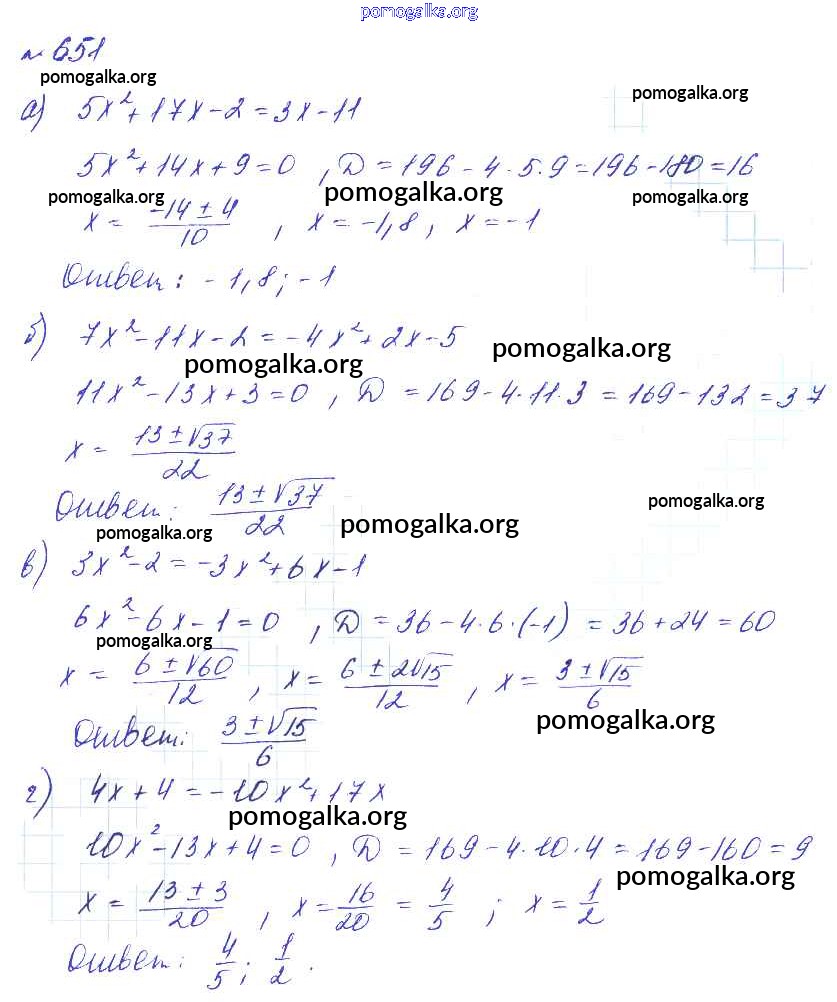 pomogalka.org
№ 651
pomogalka.org
pomogalka.org
а) 5x²+17x-2=3x-11
5x²+14x+9=0 , D=196-4·5·9=196-180=16
pomogalka.org pomogalka.org pomogalka.org
x = (-14±4)/10 , x=-1,8 , x=-1
Ответ: -1,8; -1
б) 7x²-11x-2=-4x²+2x-5
pomogalka.org pomogalka.org
11x²-13x+3=0 , D=169-4·11·3=169-132=37
x = (13±√37)/22
Ответ: (13±√37)/22
pomogalka.org pomogalka.org pomogalka.org
в) 3x²-2=-3x²+6x-1
6x²-6x-1=0 , D=36-4·6·(-1)=36+24=60
pomogalka.org
x = (6±√60)/12 , x = (6±2√15)/12 , x = (3±√15)/6
pomogalka.org
Ответ: (3±√15)/6
г) 4x+4=-10x²+17x
pomogalka.org
10x²-13x+4=0 , D=169-4·10·4=169-160=9
pomogalka.org
x = (13±3)/20 , x=16/20 = 4/5 ; x=1/2
Ответ: 4/5; 1/2.